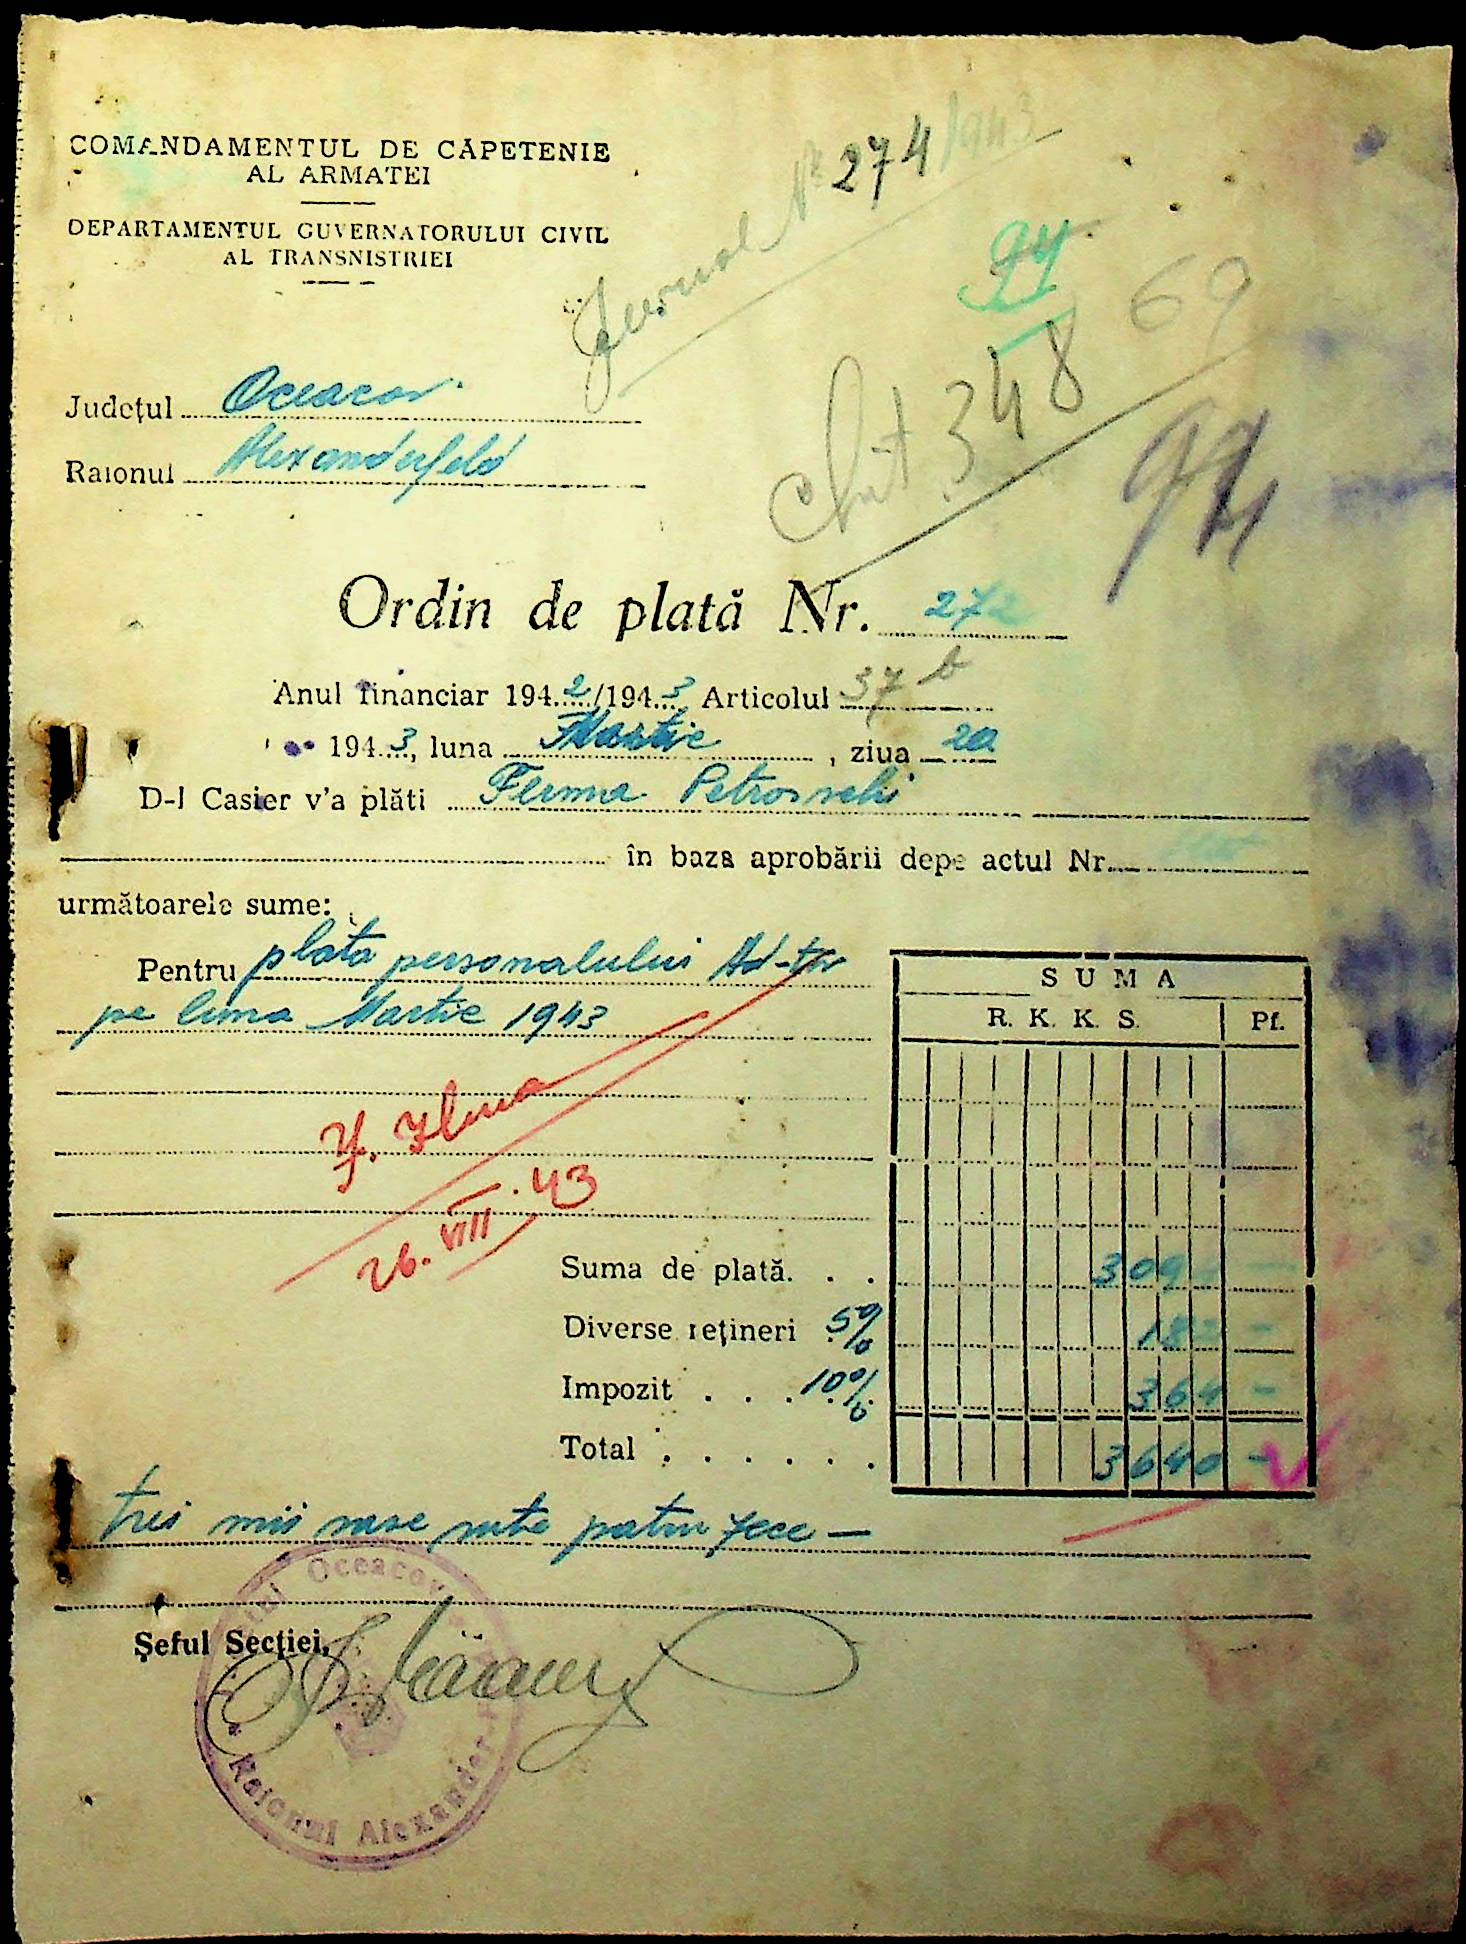 COMANDAMENTUL DE CAPETENIE
AL ARMATEI
DEPARTAMENTUL GUVERNATORULUI CIVIL
AL TRANSNISTRIEI
Jurnal Nr 274/1943
94
69
Chit 348
94
Județul Oceacov
Raionul Alexanderfeld
Ordin de plată Nr. 272
Anul financiar 1942/1943 Articolul 37 b
1943, luna Martie, ziua 20
D-l Casier v'a plăti Ferma Petrovschi
în baza aprobării depe actul Nr.
următoarele sume:
Pentru plata personalului Ad-tiv
pe luna Martie 1943
SUMA
R. K. K. S. Pf.
26.VIII.43
Suma de plată. . . 309
Diverse rețineri 5% 182 -
Impozit . . . 10% 364 -
Total . . . . . . 3640 -
trei mii șase sute patru zece —
Șeful Secției,
Oceacov
Raionul Alexander-F